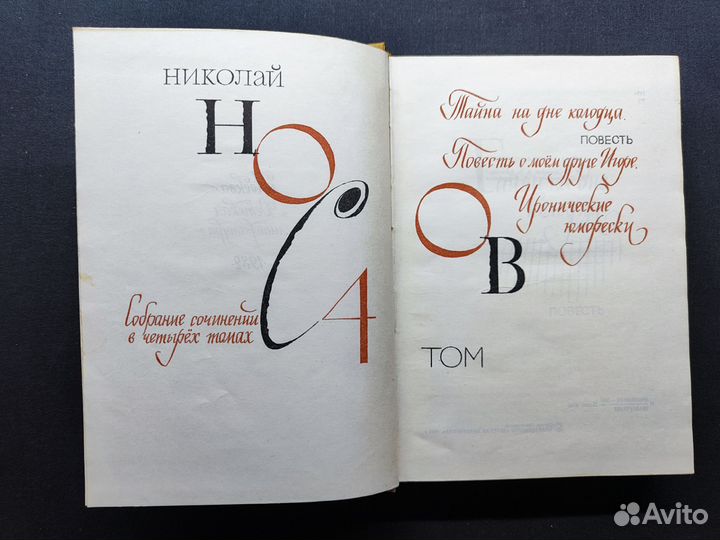 НИКОЛАЙ
НОСОВ
Собрание сочинений
в четырёх томах
4
ТОМ
Тайна на дне колодца.
ПОВЕСТЬ
Повесть о моём друге Игоре.
Иронические
юморески
Avito